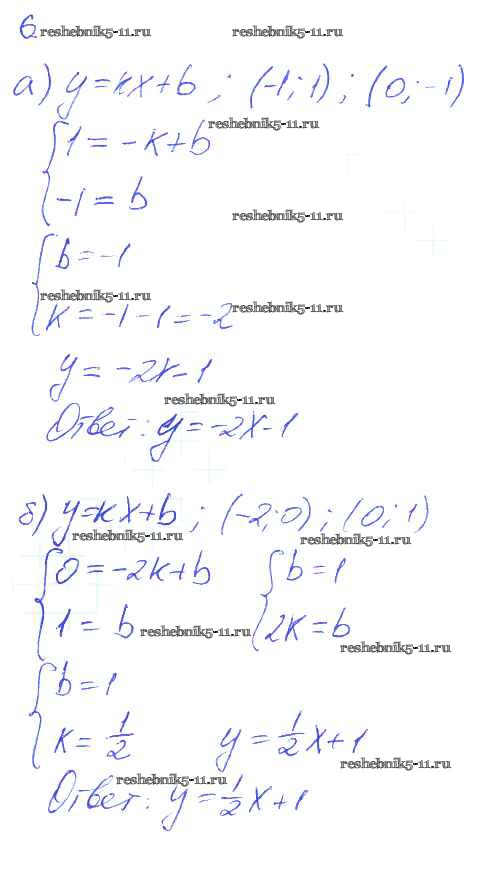 6. reshebnik5-11.ru reshebnik5-11.ru
а) y=kx+b ; (-1;1) ; (0;-1)
reshebnik5-11.ru
{1 = -k+b
{-1 = b
reshebnik5-11.ru
{b = -1
reshebnik5-11.ru reshebnik5-11.ru
{k = -1 - 1 = -2
y = -2x-1
reshebnik5-11.ru
Ответ: y = -2x-1
б) y=kx+b ; (-2;0) ; (0;1)
reshebnik5-11.ru reshebnik5-11.ru
{0 = -2k+b {b = 1
{1 = b reshebnik5-11.ru {2k = b
reshebnik5-11.ru
{b = 1
{k = 1/2 y = 1/2 x+1
reshebnik5-11.ru
reshebnik5-11.ru
Ответ: y = 1/2 x+1